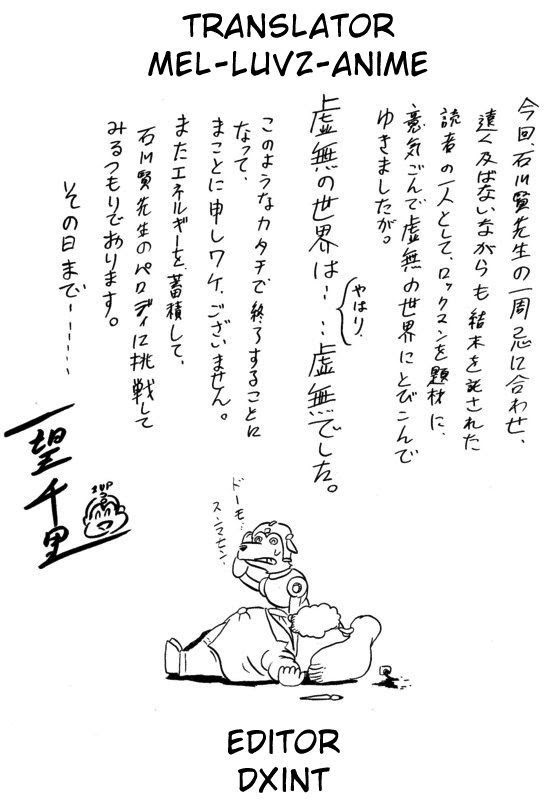 TRANSLATOR
MEL-LUVZ-ANIME
今回、石川賢先生の一周忌に合わせ、
遠く及ばないながらも結末を託された
読者の一人として、ロックスンを題材に、
意気ごんで虚無の世界にとびこんで
ゆきましたが。
虚無の世界は・・・・虚無でした。
やはり、
このようなカタチで終了することに
なって、
まことに申しワケございません。
またエネルギーを蓄積して、
石川賢先生のパロディに挑戦して
みるつもりであります。
その日まで・・・・・・
一望千里
1UP
ドーモ…
スンマセン、
EDITOR
DXINT